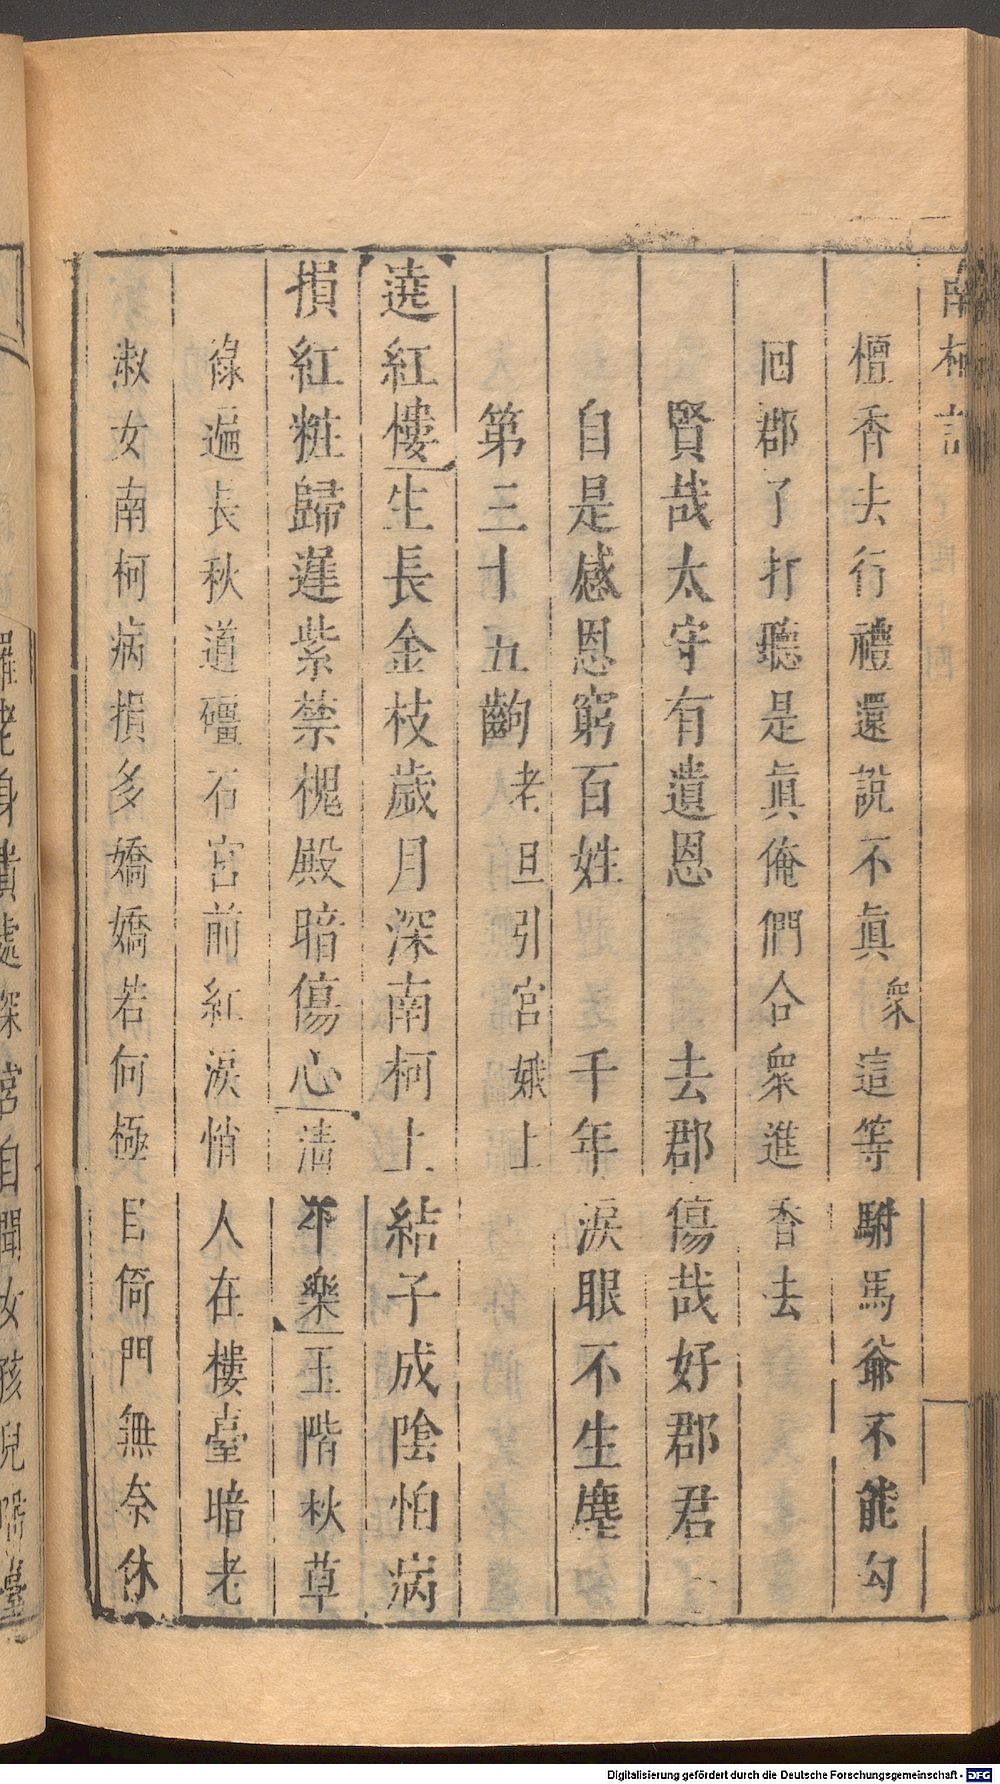 南柯記
檀香去行禮還說不眞衆這等駙馬爺不能勾
囘郡了打聽是眞俺們合衆進香去
賢哉太守有遺恩　去郡傷哉好郡君
自是感恩窮百姓　千年淚眼不生塵
第三十五齣　老旦引宮娥上
遶紅樓生長金枝歲月深南柯上結子成陰怕病
損紅粧歸遲紫禁槐殿暗傷心清平樂玉階秋草
綠遍長秋道礓石宮前紅淚悄人在樓臺暗老
淑女南柯病損多嬌嬌若何極目倚門無奈休
老身貴處深宮自聞女孩兒
Digitalisierung gefördert durch die Deutsche Forschungsgemeinschaft - DFG